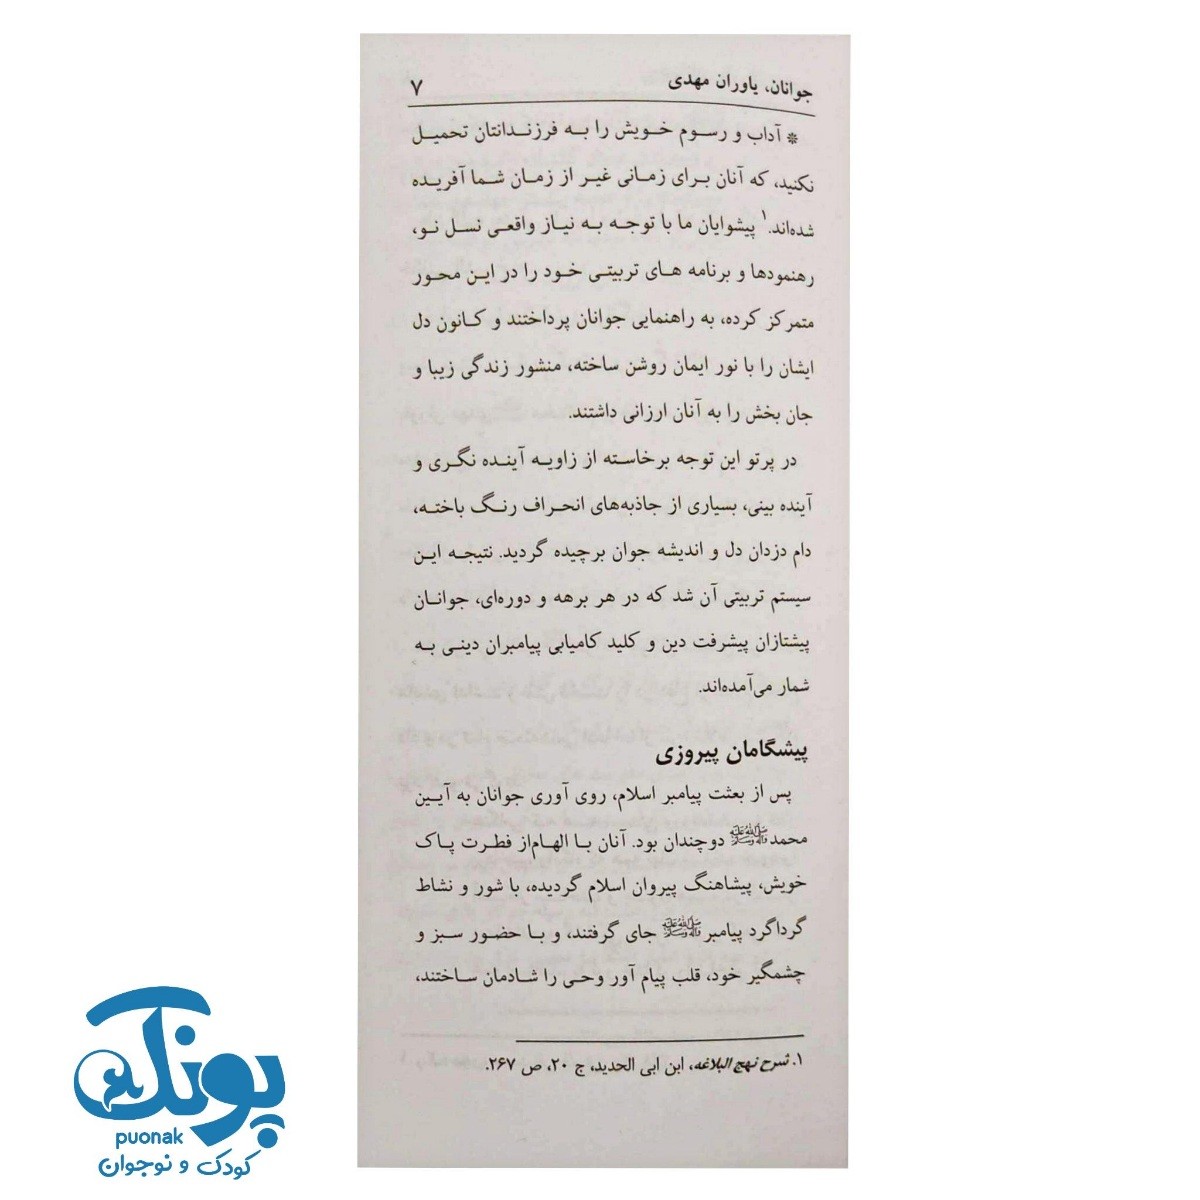 جوانان، یاوران مهدی ۷
* آداب و رسوم خویش را به فرزندانتان تحمیل
نکنید، که آنان برای زمانی غیر از زمان شما آفریده
شده‌اند.۱ پیشوایان ما با توجه به نیاز واقعی نسل نو،
رهنمودها و برنامه های تربیتی خود را در این محور
متمرکز کرده، به راهنمایی جوانان پرداختند و کانون دل
ایشان را با نور ایمان روشن ساخته، منشور زندگی زیبا و
جان بخش را به آنان ارزانی داشتند.
در پرتو این توجه برخاسته از زاویه آینده نگری و
آینده بینی، بسیاری از جاذبه‌های انحراف رنگ باخته،
دام دزدان دل و اندیشه جوان برچیده گردید. نتیجه این
سیستم تربیتی آن شد که در هر برهه و دوره‌ای، جوانان
پیشتازان پیشرفت دین و کلید کامیابی پیامبران دینی به
شمار می‌آمده‌اند.
پیشگامان پیروزی
پس از بعثت پیامبر اسلام، روی آوری جوانان به آیین
محمد صلی الله علیه وآله وسلم دوچندان بود. آنان با الهام‌از فطرت پاک
خویش، پیشاهنگ پیروان اسلام گردیده، با شور و نشاط
گرداگرد پیامبر صلی الله علیه وآله وسلم جای گرفتند، و با حضور سبز و
چشمگیر خود، قلب پیام آور وحی را شادمان ساختند،
۱. شرح نهج البلاغه، ابن ابی الحدید، ج ۲۰، ص ۲۶۷.
پونک
puonak
کودک و نوجوان